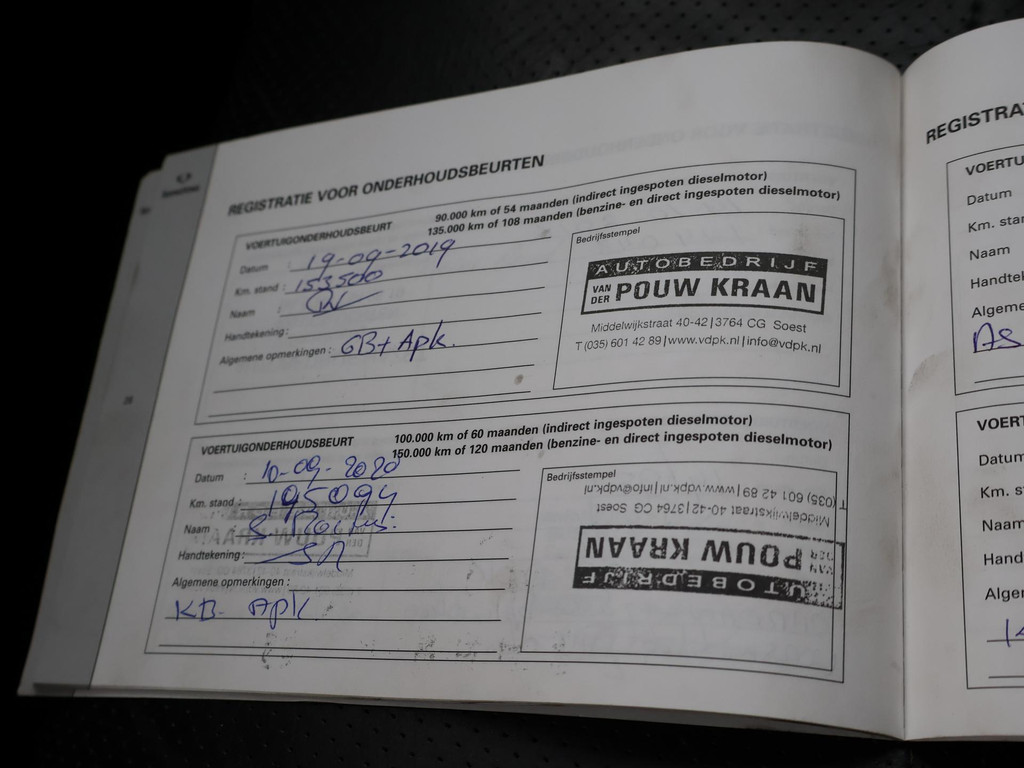 REGISTRATIE VOOR ONDERHOUDSBEURTEN
VOERTUIGONDERHOUDSBEURT
90.000 km of 54 maanden (indirect ingespoten dieselmotor)
135.000 km of 108 maanden (benzine- en direct ingespoten dieselmotor)
Datum : 19-09-2019
Km. stand : 153500
Naam :
Handtekening :
Algemene opmerkingen : GB+ Apk.
Bedrijfsstempel
AUTOBEDRIJF
VAN DER POUW KRAAN
Middelwijkstraat 40-42 | 3764 CG Soest
T (035) 601 42 89 | www.vdpk.nl | info@vdpk.nl
VOERTUIGONDERHOUDSBEURT
100.000 km of 60 maanden (indirect ingespoten dieselmotor)
150.000 km of 120 maanden (benzine- en direct ingespoten dieselmotor)
Datum : 10-09-2020
Km. stand : 195094
Naam : S
Handtekening :
Algemene opmerkingen :
KB Apk
Bedrijfsstempel
AUTOBEDRIJF
VAN DER POUW KRAAN
Middelwijkstraat 40-42 | 3764 CG Soest
T (035) 601 42 89 | www.vdpk.nl | info@vdpk.nl
REGISTRA
VOERTU
Datum
Km. sta
Naam
Handtek
Algeme
AS
VOERT
Datum
Km. s
Naam
Hand
Alger